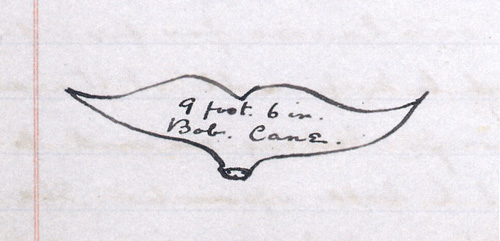 9 foot. 6 in.
Bob. Cane.